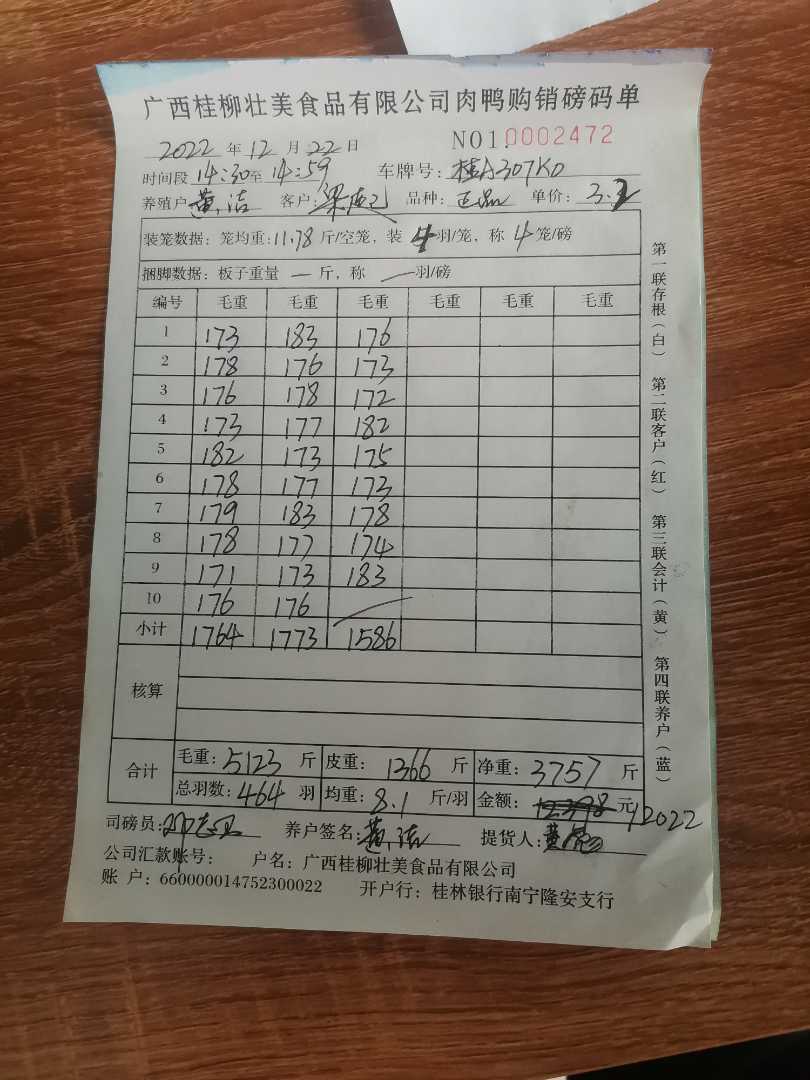 广西桂柳壮美食品有限公司肉鸭购销磅码单
2022 年 12 月 22 日 NO1.0002472
时间段 14:30 至 14:59 车牌号: 桂A307K0
养殖户 黄洁 客户: 梁 品种: 正品 单价: 3.2
装笼数据: 笼均重: 11.78 斤/空笼, 装 4 羽/笼, 称 4 笼/磅
捆脚数据: 板子重量 — 斤, 称 — 羽/磅
编号 毛重 毛重 毛重 毛重 毛重 毛重
1 173 183 176
2 178 176 173
3 176 178 172
4 173 177 182
5 182 173 175
6 178 177 173
7 179 183 178
8 178 177 174
9 171 173 183
10 176 176
小计 1764 1773 1586
核算
合计 毛重: 5123 斤 皮重: 1366 斤 净重: 3757 斤
总羽数: 464 羽 均重: 8.1 斤/羽 金额: 元 12022
司磅员: 养户签名: 黄洁 提货人: 黄
公司汇款账号: 户名: 广西桂柳壮美食品有限公司
账 户: 660000014752300022 开户行: 桂林银行南宁隆安支行
第一联存根(白) 第二联客户(红) 第三联会计(黄) 第四联养户(蓝)